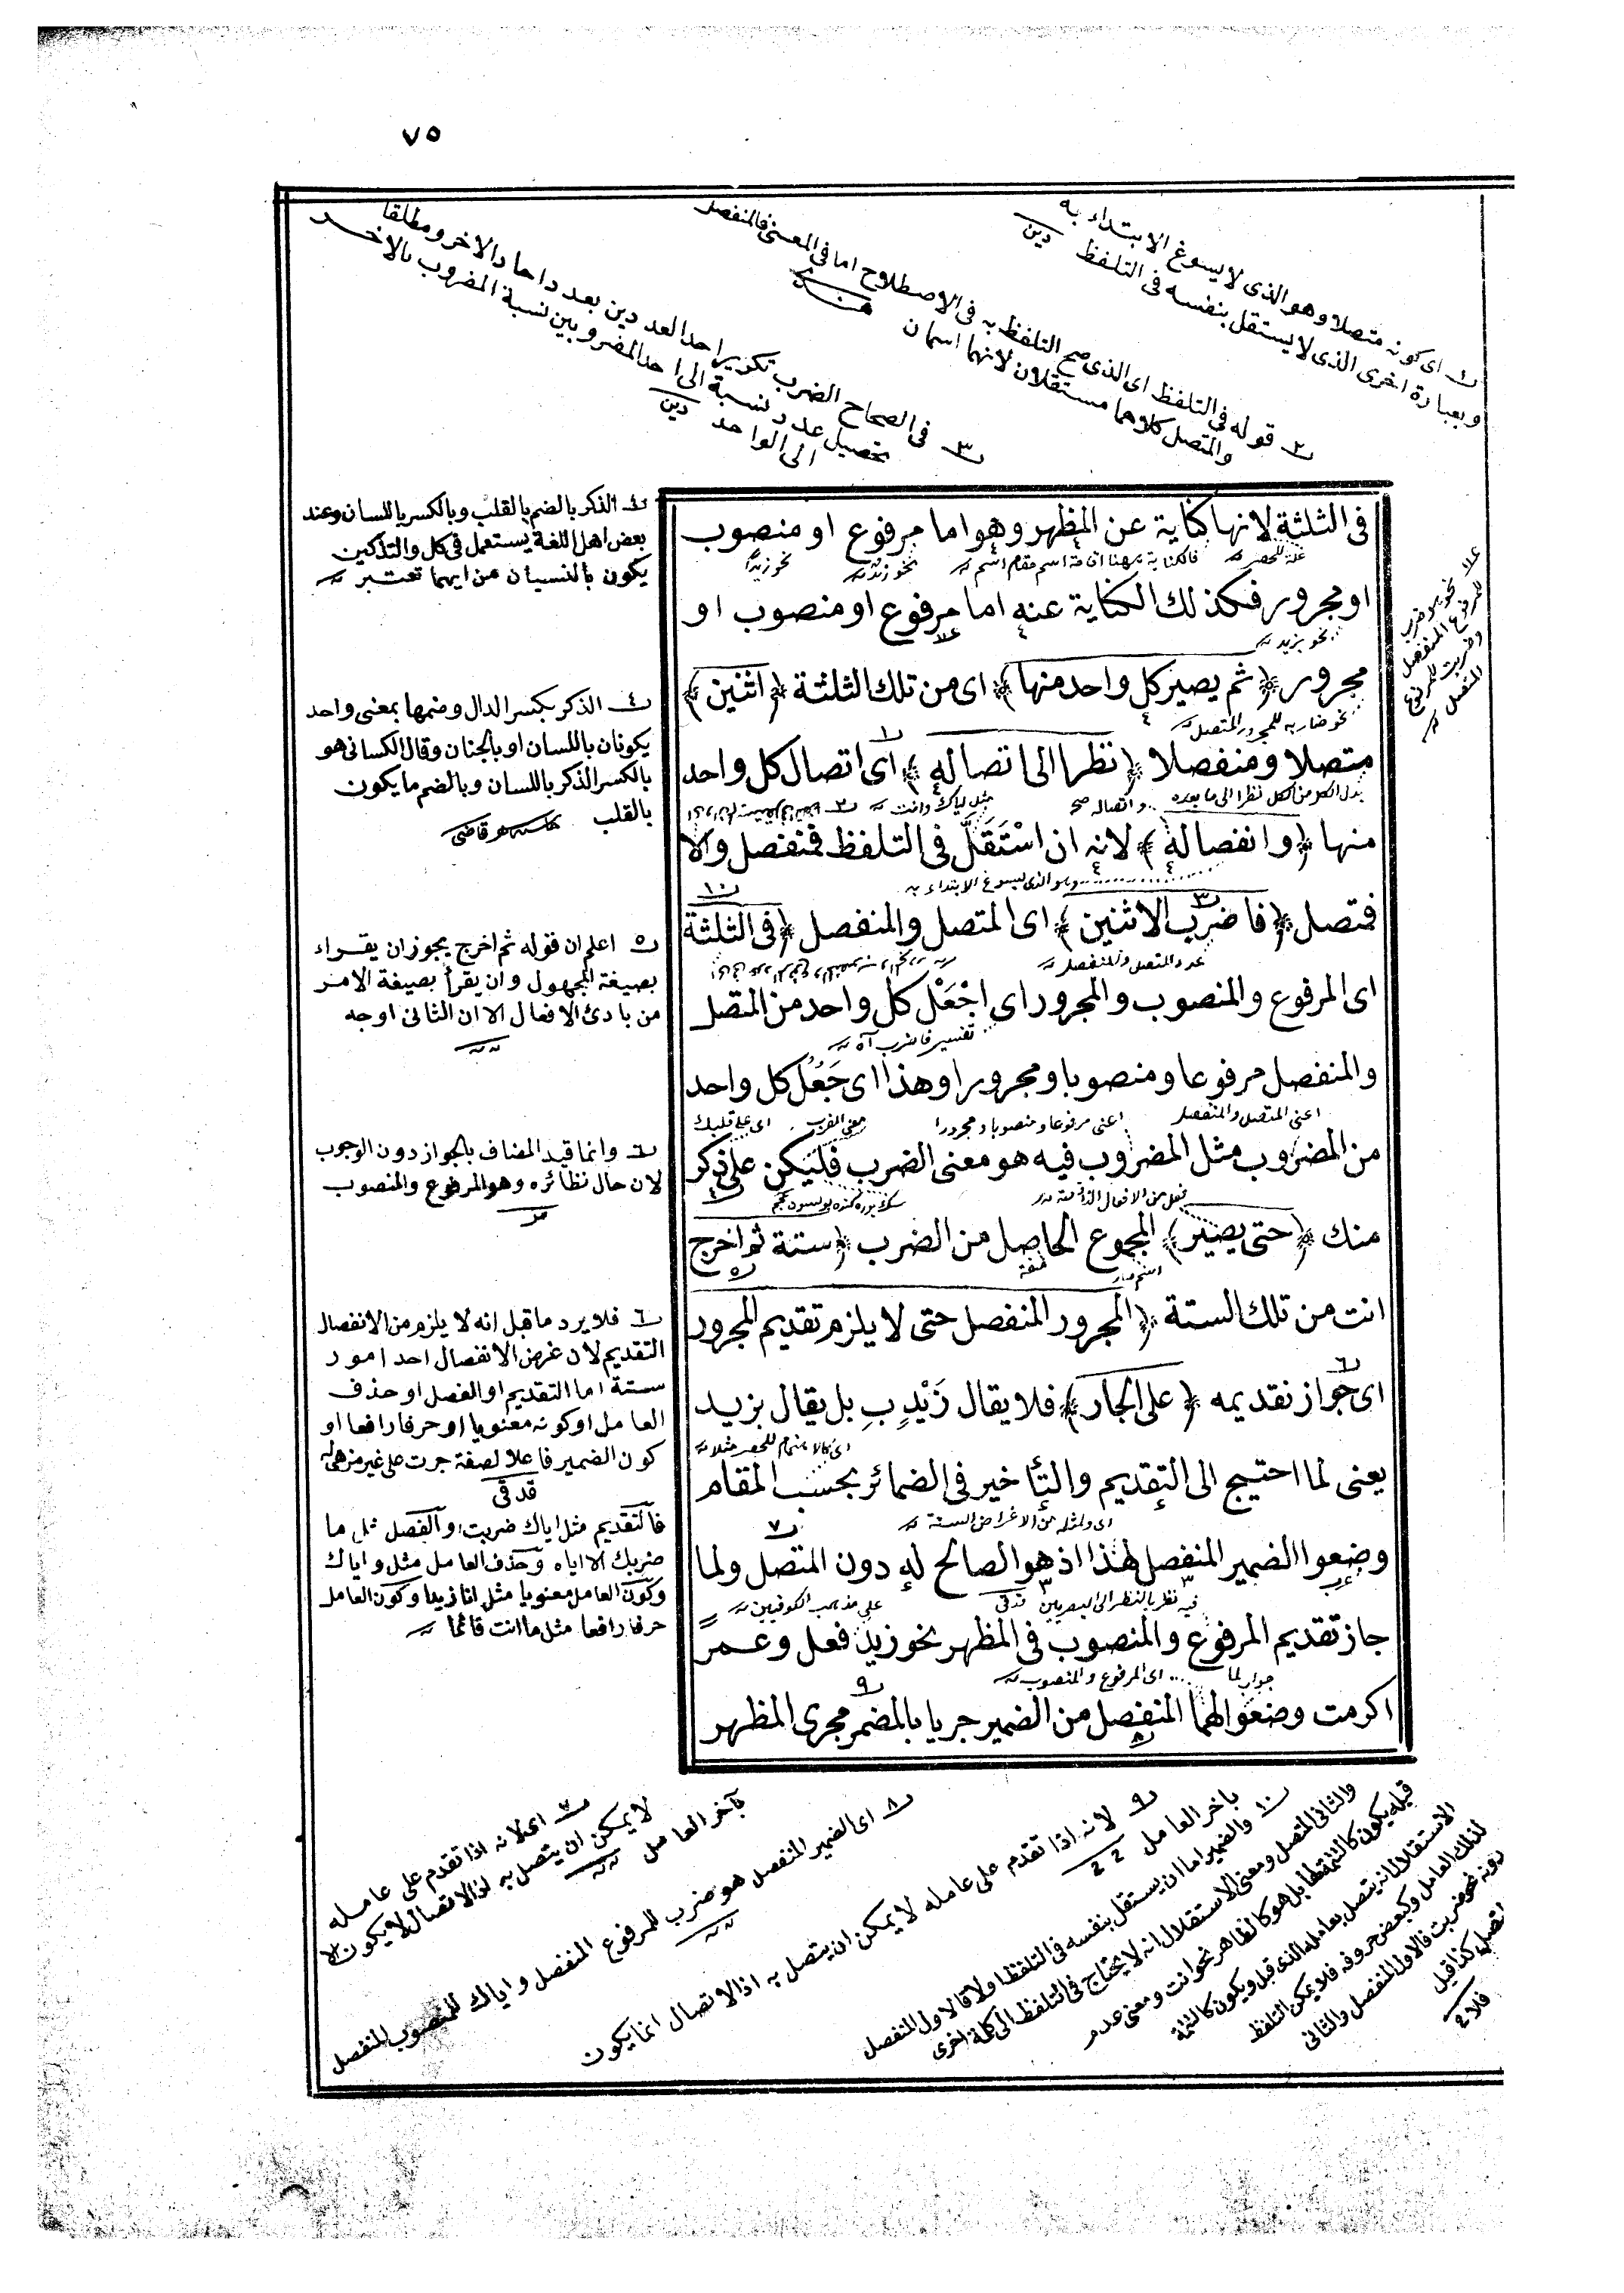 ٧٥
١ اى كونه متصلا وهو الذى لا يسوغ الابتداء به
وبعبارة اخرى الذى لا يستقل بنفسه فى التلفظ دين
٢ قوله فى التلفظ اى الذى صح التلفظ به فى الاصطلاح اما فى المعنى فالمنفصل
والمتصل كلاهما مستقلان لانهما اسمان
٣ فى الصحاح الضرب تكرير احد العددين بعد واحاد الاخر ومطلقا
تحصيل عدد نسبة الى احد المضروبين نسبة المضروب بالاخر
الى الواحد دين
فى الثلثة لانها كناية عن المظهر وهو اما مرفوع او منصوب
او مجرور فكذلك الكناية عنه اما مرفوع او منصوب او
نحو بزيد
مجرور ﴿ثم يصير كل واحد منها﴾ اى من تلك الثلثة ﴿اثنين﴾
نحو ضاربه للمجرور المتصل
متصلا ومنفصلا ﴿نظرا الى اتصاله﴾ اى اتصال كل واحد
منها ﴿وانفصاله﴾ لانه ان اسْتَقَلَّ فى التلفظ فمنفصل والا
فمتصل ﴿فاضرب الاثنين﴾ اى المتصل والمنفصل ﴿فى الثلثة
عدد المتصل والمنفصل
اى المرفوع والمنصوب والمجرور اى اجْعَلْ كل واحد من المتصل
تفسير فاضرب اه
والمنفصل مرفوعا ومنصوبا ومجرورا وهذا اى جَعْلُ كل واحد
اعنى المتصل والمنفصل اعنى مرفوعا ومنصوبا ومجرورا معنى الضرب اى على قلبك
من المضروب مثل المضروب فيه هو معنى الضرب فليكن على ذكر
منك ﴿حتى يصير﴾ المجموع الحاصل من الضرب ﴿ستة ثم اخرج
انت من تلك الستة ﴿المجرور المنفصل حتى لا يلزم تقديم المجرور
اى جواز تقديمه ﴿على الجار﴾ فلا يقال زَيْدٍ بِ بل يقال بزيد
يعنى لما احتيج الى التقديم والتأخير فى الضمائر بحسب المقام
اى ولمثله من الاغراض الستة
وضعوا الضمير المنفصل لهذا اذ هو الصالح له دون المتصل ولما
فيه نظر بالنظر الى البصريين قدقى على مذهب الكوفيين
جاز تقديم المرفوع والمنصوب فى المظهر نحو زيد فعل وعمرً
جواب لما اى المرفوع والمنصوب
اكرمت وضعوا لهما المنفصل من الضمير جريا بالمضمر مجرى المظهر
علا نحو هو ضرب
للمرفوع المنفصل
وضربت للمرفوع
المتصل
٤ الذكر بالضم بالقلب وبالكسر باللسان وعند
بعض اهل اللغة يستعمل فى كل والتذكير
يكون بالنسيان من ايهما تعتبر
٤ الذكر بكسر الدال وضمها بمعنى واحد
يكونان باللسان او بالجنان وقال الكسائى هو
بالكسر الذكر باللسان وبالضم ما يكون
بالقلب
٥ اعلم ان قوله ثم اخرج يجوز ان يقراء
بصيغة المجهول وان يقرأ بصيغة الامر
من بادئ الافعال الا ان الثانى اوجه
٦ وانما قيد المضاف بالجواز دون الوجوب
لان حال نظائره وهو المرفوع والمنصوب
٦ فلا يرد ما قيل انه لا يلزم من الانفصال
التقديم لان غرض الانفصال احد امور
ستة اما التقديم او الفصل او حذف
العامل او كونه معنويا او حرفا رافعا او
كون الضمير فاعلا لصفة جرت على غير من هى له
قدقى
فالتقديم مثل اياك ضربت والفصل مثل ما
ضربك الا اياه وحذف العامل مثل واياك
وكون العامل معنويا مثل انا زيد وكون العامل
حرفا رافعا مثل ما انت قائما
٧ اى لانه اذا تقدم على عامله
لا يمكن ان يتصل به اذ الاتصال لا يكون الا
بآخر العامل
٨ اى الضمير المنفصل هو ضرب للمرفوع المنفصل واياك للمنصوب المنفصل
٩ لانه اذا تقدم على عامله لا يمكن ان يتصل به اذ الاتصال انما يكون
باخر العامل
١٠ والضمير اما ان يستقل بنفسه فى التلفظ اولا فالاول المنفصل
والثانى المتصل ومعنى الاستقلال انه لا يحتاج فى التلفظ الى كلمة اخرى
قبله يكون كالتتمة لها بل هو كالظاهر نحو انت ومعنى عدم
الاستقلال انه يتصل بعامله الذى قبل ويكون كالتتمة
لذلك العامل وكبعض حروفه فلا يمكن التلفظ
دونه نحو ضربت فالاول المنفصل والثانى
المتصل كذا قيل